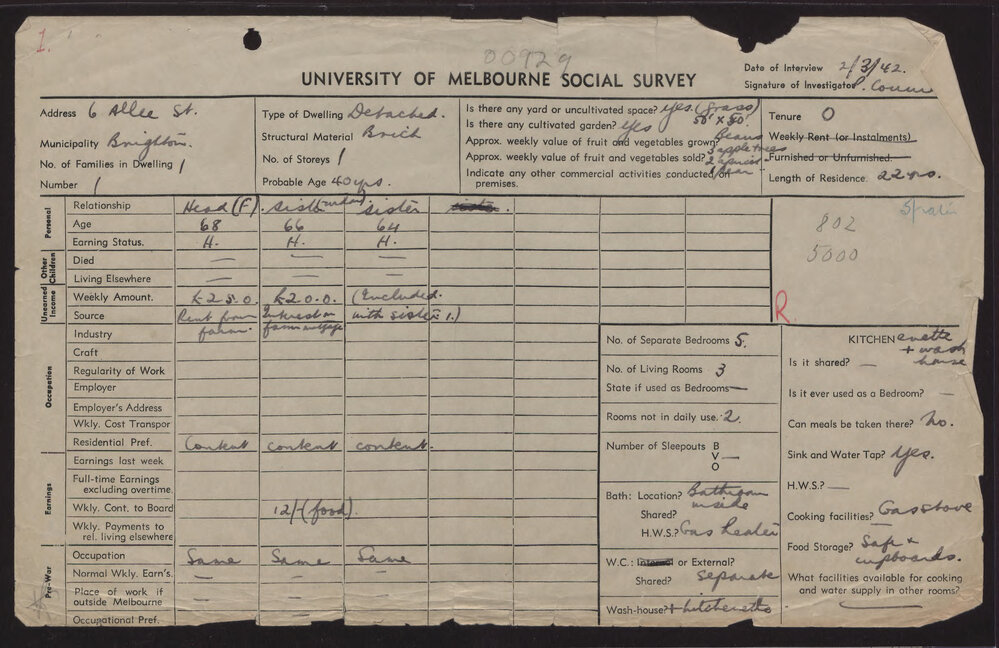 1.
00929
UNIVERSITY OF MELBOURNE SOCIAL SURVEY
Date of Interview 2/3/42.
Signature of Investigator
Address 6 Allee St.
Municipality Brighton.
No. of Families in Dwelling 1
Number 1
Type of Dwelling Detached.
Structural Material Brick
No. of Storeys 1
Probable Age 40 yrs.
Is there any yard or uncultivated space? Yes. (Grass)
50' x 80'
Is there any cultivated garden? Yes
Beans
Approx. weekly value of fruit and vegetables grown? 3 apple trees
Approx. weekly value of fruit and vegetables sold? 2 apricot
Indicate any other commercial activities conducted on 1 pear
premises.
Tenure O
Weekly Rent (or Instalments)
Furnished or Unfurnished.
Length of Residence. 22 yrs.
802
5000
R.
Personal
Relationship Head (F) Sister sister
Age 68 66 64
Earning Status. H. H. H.
Other Children
Died — — —
Living Elsewhere — — —
Unearned Income
Weekly Amount. £2 5. 0. £2 0. 0. (Included
Source Rent from Interest on with sister 1.)
farm. farm mortgage
Occupation
Industry
Craft
Regularity of Work
Employer
Employer's Address
Wkly. Cost Transpor
Residential Pref. Content content content.
Earnings
Earnings last week
Full-time Earnings
excluding overtime.
Wkly. Cont. to Board 12/- (food).
Wkly. Payments to
rel. living elsewhere
Pre-War
Occupation Same Same Same
Normal Wkly. Earn's. — — —
Place of work if
outside Melbourne — — —
Occupational Pref.
No. of Separate Bedrooms 5.
No. of Living Rooms 3
State if used as Bedrooms —
Rooms not in daily use. 2.
Number of Sleepouts B
V —
O
Bath: Location? Bathroom
inside
Shared?
H.W.S.? Gas heater
W.C.: Internal or External?
Shared? Separate
Wash-house? + kitchenette
KITCHENenette
+ wash
house
Is it shared? —
Is it ever used as a Bedroom? —
Can meals be taken there? No.
Sink and Water Tap? Yes.
H.W.S.? —
Cooking facilities? Gas stove
Food Storage? Safe &
cupboards.
What facilities available for cooking
and water supply in other rooms?